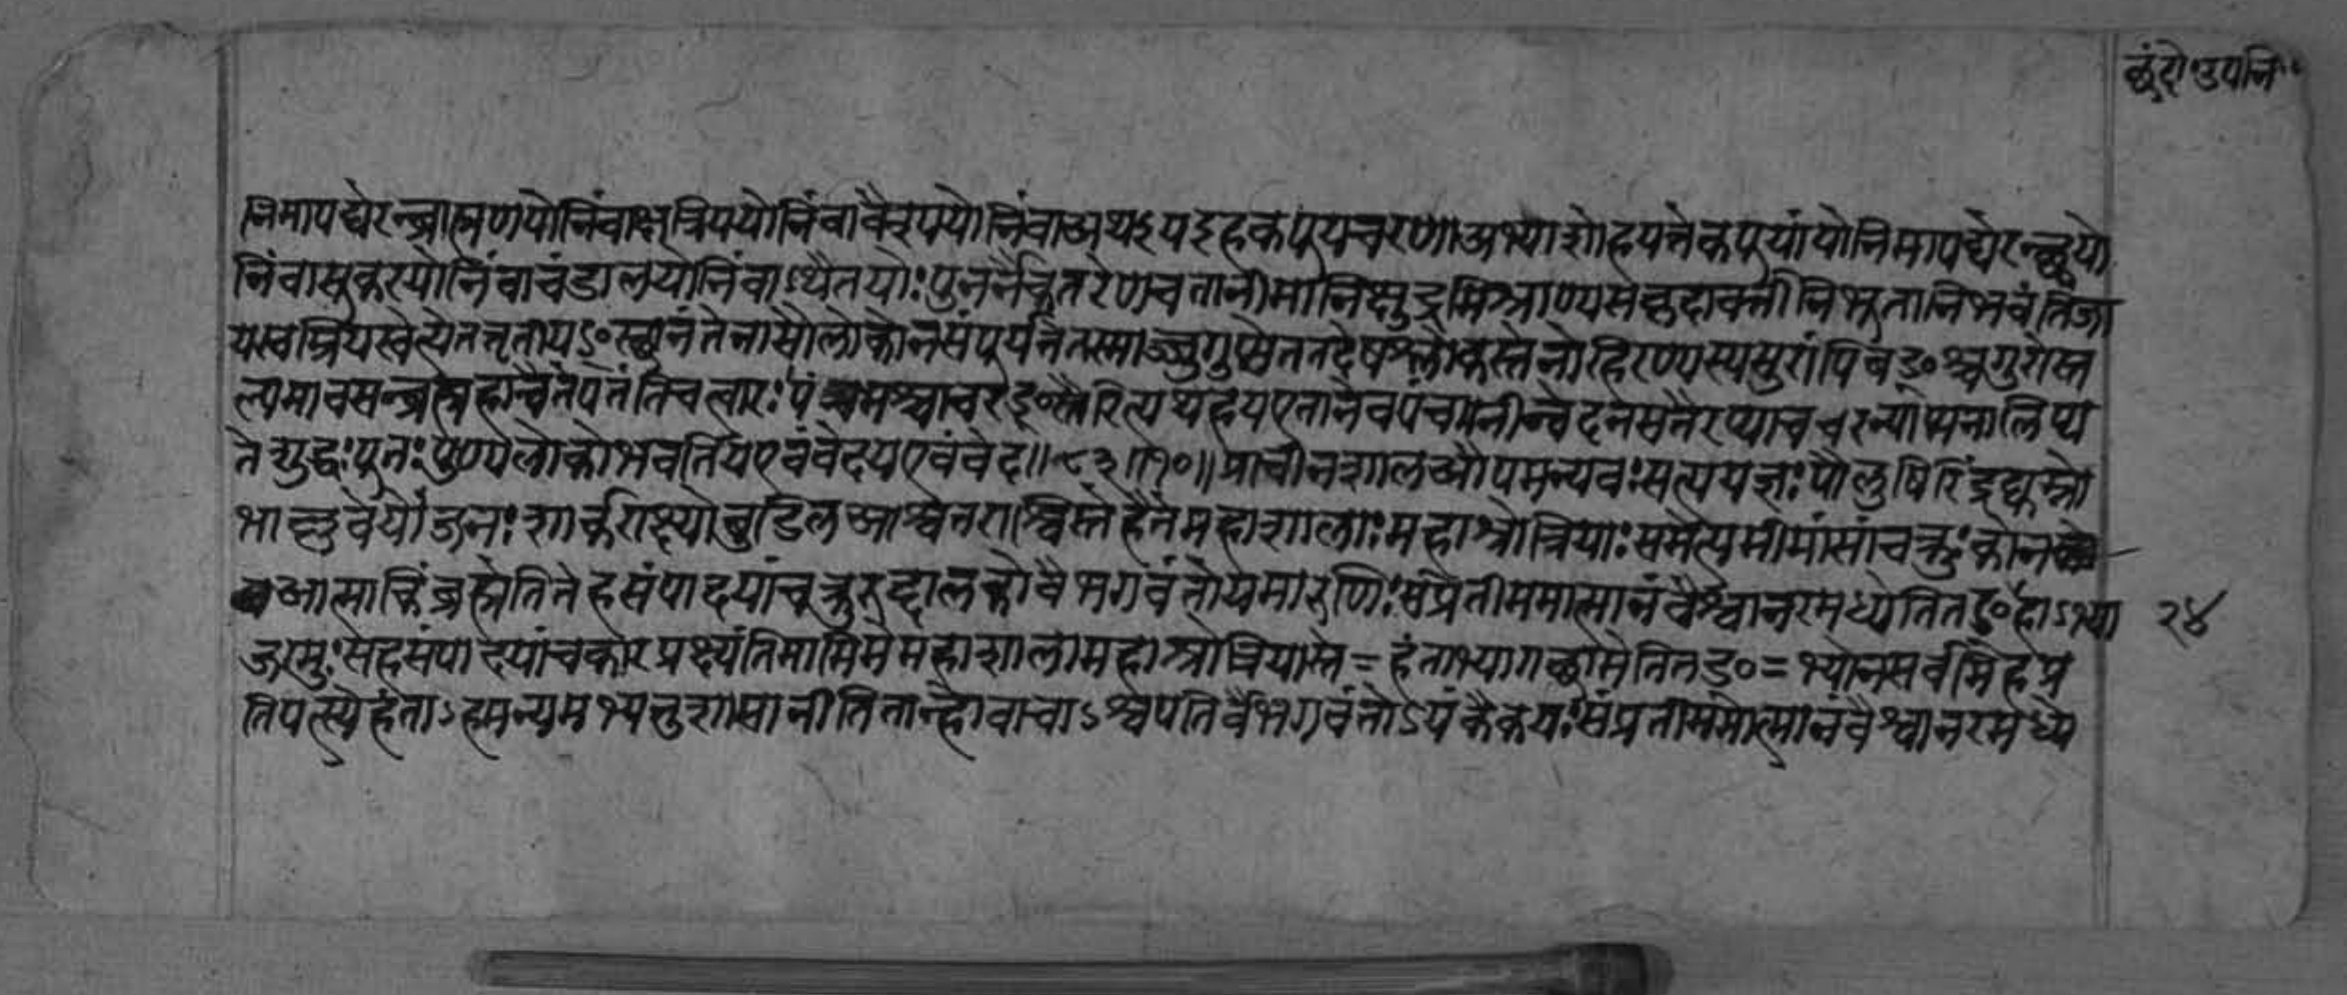 छंदोउपनि॰
निमापद्येरन्ब्राह्मणयोनिंवाक्षत्रिययोनिंवावैश्ययोनिंवाअथइयइहकपूयचरणाअभ्याशोहयत्तेकपूयांयोनिमापद्येरन्छ्वयो
निंवासूकरयोनिंवाचंडालयोनिंवाऽथैतयोः पुनर्नैकतरेणचतानीमानिक्षुद्रमिश्राण्यसकृदावर्तीनिभूतानिभवंतिजा
यस्वम्रियस्वेत्येतत्तृतीयꣳस्थानंतेनासौलोकोनसंपूर्यतेतस्माज्जुगुप्सेततदेषश्लोकस्तेनोहिरण्यस्यसुरांपिबꣳश्चगुरोस्त
ल्पमावसन्ब्रह्महाचैतेपतंतिचत्वारः पंचमश्चाचरꣳस्तैरित्यथहयएतानेवपंचाग्नीन्वेदनसतैरप्याचचरन्पाप्मनालिप्य
तेशुद्धः पूतः पुण्यलोकोभवतियएवंवेदयएवंवेद॥८३॥१०॥प्राचीनशालऔपमन्यवः सत्ययज्ञः पौलुषिरिंद्रद्युम्नो
भाल्लवेयोजनः शार्कराक्ष्योबुडिलआश्वतराश्विस्तेहैतेमहाशालाः महाश्रोत्रियाः समेत्यमीमांसांचक्रुः कोन
आत्माकिंब्रह्मेतितेहसंपादयांचक्रुरुद्दालकोवैभगवंतोयमारुणिः संप्रतीममात्मानंवैश्वानरमध्येतितꣳहाऽभ्या
२४
जग्मुः सहसंपादयांचकारप्रक्ष्यंतिमामिमेमहाशालामहाश्रोत्रियास्ते=हंताभ्यागच्छामेतितꣳ=भ्योनसर्वमिहप्र
तिपत्स्येहंताऽहमन्यमभ्यनुशासानीतितान्होवाचाऽश्वपतिर्वैभगवंतोऽयंकैकयः संप्रतीममात्मानंवैश्वानरमध्ये